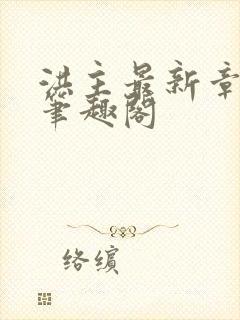 洪主最新章
笔趣阁
络缤